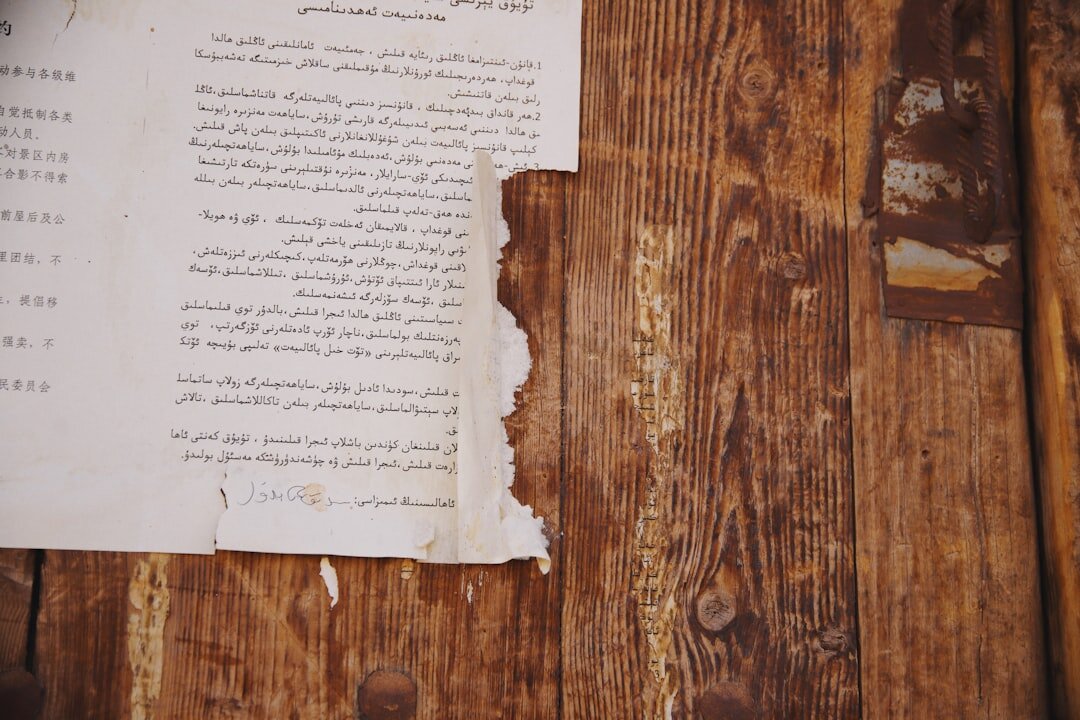 约
动参与各级维
自觉抵制各类
动人员。
对景区内房
合影不得索
前屋后及公
里团结，不
，提倡移
强卖，不
民委员会
تۇيۇق يېزىسى
مەدەنىيەت ئەھدىنامىسى
1.قانۇن-ئىنتىزامغا ئاڭلىق رىئايە قىلىش ، جەمئىيەت ئامانلىقىنى ئاڭلىق ھالدا
قوغداپ، ھەردەرىجىلىك ئورۇنلارنىڭ مۇقىملىقنى ساقلاش خىزمىتىگە تەشەببۇسكا
رلىق بىلەن قاتنىشىش.
2.ھەر قانداق بىدئەدچىلىك ، قانۇنسىز دىننىي پائالىيەتلەرگە قاتناشماسلىق،ئاڭلى
ق ھالدا دىننىي ئەسەبىي ئىدىيىلەرگە قارشى تۇرۇش،ساياھەت مەنزىرە رايونىغا
كېلىپ قانۇنسىز پائالىيەت بىلەن شۇغۇللانغانلارنى ئاكتىپلىق بىلەن پاش قىلىش.
نى مەدەنىي بولۇش،ئەدەپلىك مۇئامىلىدا بولۇش،ساياھەتچىلەرنىڭ
ئىچىدىكى ئۆي-سارايلار، مەنزىرە نۇقتىلىرىنى سۈرەتكە تارتىشىغا
ماسلىق،ساياھەتچىلەرنى ئالدىماسلىق،ساياھەتچىلەر بىلەن بىللە
ىدە ھەق-تەلەپ قىلماسلىق.
نى قوغداپ ، قالايمىقان ئەخلەت تۆكمەسلىك ، ئۆي ۋە ھويلا-
ئۇنى رايونلارنىڭ تازىلىقىنى ياخشى قىلىش.
لاقىنى قوغداش،چوڭلارنى ھۆرمەتلەپ،كىچىكلەرنى ئىززەتلەش،
نىلار ئارا ئىتتىپاق ئۆتۈش،ئۇرۇشماسلىق ،تىللاشماسلىق،ئۆسەك
سلىق ،ئۆسەك سۆزلەرگە ئىشەنمەسلىك.
سىياسىتىنى ئاڭلىق ھالدا ئىجرا قىلىش،بالدۇر توي قىلماسلىق
پەرزەنتلىك بولماسلىق،ناچار ئۆرپ ئادەتلەرنى ئۆزگەرتىپ، توي
ىراق پائالىيەتلىرىنى «تۆت خىل پائالىيەت» تەلىپى بويىچە ئۆتك
قىلىش،سودىدا ئادىل بولۇش،ساياھەتچىلەرگە زولاپ ساتماسل
ولاپ سېتىۋالماسلىق،ساياھەتچىلەر بىلەن تاكاللاشماسلىق ،تالاش
ق.
لان قىلىنغان كۈندىن باشلاپ ئىجرا قىلىنىدۇ ، تۇيۇق كەنتى ئاھا
زارەت قىلىش،ئىجرا قىلىش ۋە چۈشەندۈرۈشكە مەسئۇل بولىدۇ.
ئاھالىسىنىڭ ئىمزاسى: